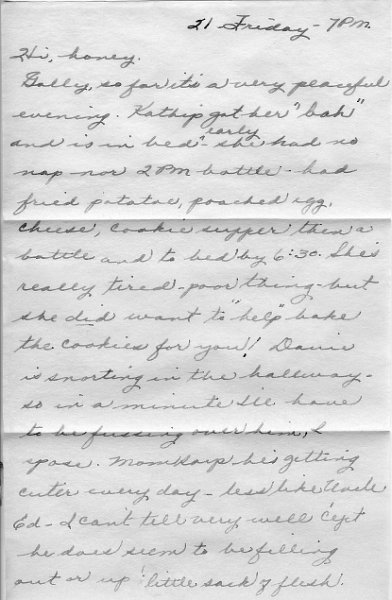 21 Friday - 7PM.
Hi, honey.
Golly, so far it's a very peaceful
evening. Kathip got her "bah"
and is in bed - early she had no
nap - nor 2 PM bottle - had
fried potatoe, poached egg,
cheese, cookie supper then a
bottle and to bed by 6:30. She's
really tired - poor thing - but
she did want to "help" bake
the cookies for you! Davie
is snorting in the hallway -
so in a minute I'll have
to be fussing over him, I
spose. Mom Karp he's getting
cuter every day - less like Uncle
Ed - I can't tell very well 'cept
he does seem to be filling
out or up 'little sack of flesh'.